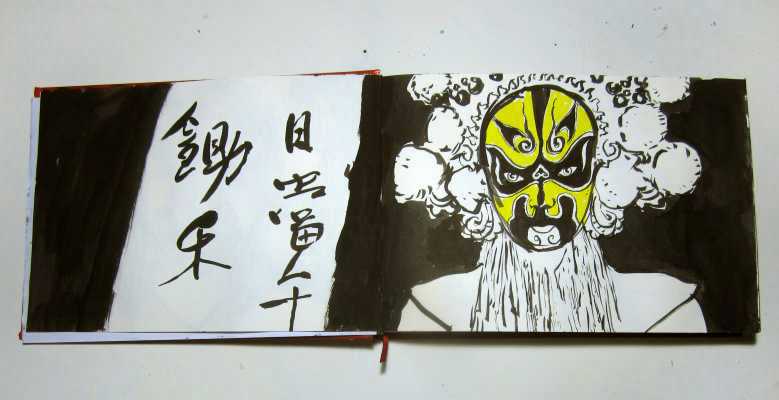 鋤禾
日當午